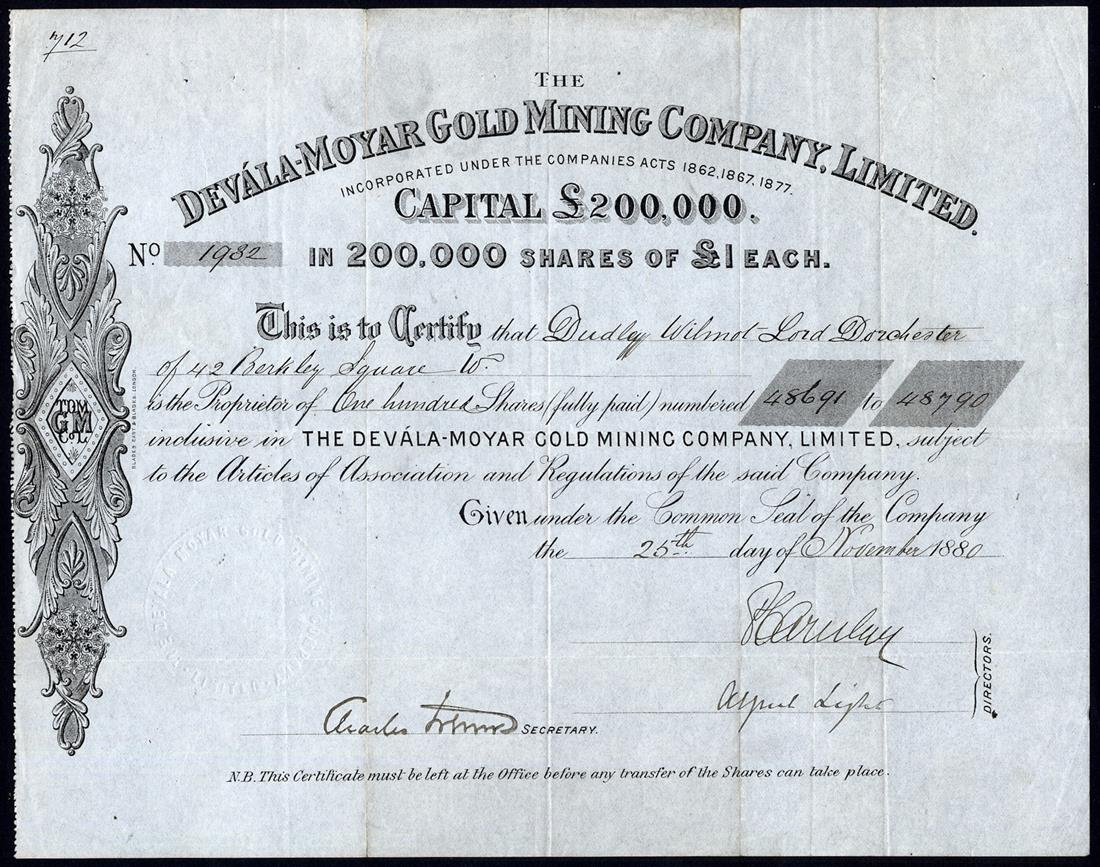 712
THE
DEVÁLA-MOYAR GOLD MINING COMPANY, LIMITED.
INCORPORATED UNDER THE COMPANIES ACTS 1862, 1867, 1877.
CAPITAL £200,000.
No. 1932 IN 200,000 SHARES OF £1 EACH.
This is to Certify that Dudley Wilmot-Lord Dorchester
of 42 Berkley Square W.
is the Proprietor of One hundred Shares (fully paid) numbered 48691 to 48790
inclusive in THE DEVÁLA-MOYAR GOLD MINING COMPANY, LIMITED, subject
to the Articles of Association and Regulations of the said Company.
Given under the Common Seal of the Company
the 25th day of November 1880
DIRECTORS.
Alfred Light
Charles
SECRETARY.
N.B. This Certificate must be left at the Office before any transfer of the Shares can take place.
T.D.M.
G M
Co. L.
BLADES, EAST & BLADES, LONDON.
THE DEVÁLA MOYAR GOLD MINING COMPANY LIMITED